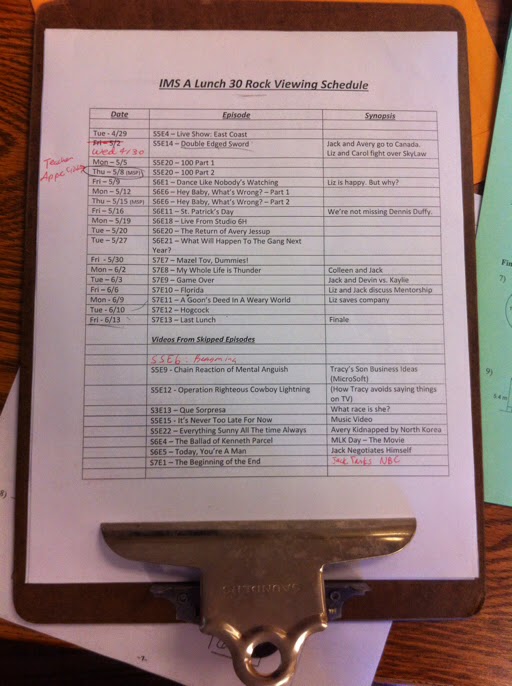 IMS A Lunch 30 Rock Viewing Schedule
Date Episode Synopsis
Tue - 4/29 S5E4 – Live Show: East Coast
Fri – 5/2 S5E14 – Double Edged Sword Jack and Avery go to Canada.
Wed 4/30 Liz and Carol fight over SkyLaw
Teacher
Appreciat
Mon – 5/5 S5E20 – 100 Part 1
Thu – 5/8 (MSP) S5E20 – 100 Part 2
Fri – 5/9 S6E1 – Dance Like Nobody's Watching Liz is happy. But why?
Mon – 5/12 S6E6 – Hey Baby, What's Wrong? – Part 1
Thu – 5/15 (MSP) S6E6 – Hey Baby, What's Wrong? – Part 2
Fri – 5/16 S6E11 – St. Patrick's Day We're not missing Dennis Duffy.
Mon – 5/19 S6E18 – Live From Studio 6H
Tue – 5/20 S6E20 – The Return of Avery Jessup
Tue – 5/27 S6E21 – What Will Happen To The Gang Next
Year?
Fri - 5/30 S7E7 – Mazel Tov, Dummies!
Mon – 6/2 S7E8 – My Whole Life is Thunder Colleen and Jack
Tue – 6/3 S7E9 – Game Over Jack and Devin vs. Kaylie
Fri – 6/6 S7E10 – Florida Liz and Jack discuss Mentorship
Mon - 6/9 S7E11 – A Goon's Deed In A Weary World Liz saves company
Tue - 6/10 S7E12 – Hogcock
Fri - 6/13 S7E13 – Last Lunch Finale
Videos From Skipped Episodes
S5E6
S5E9 - Chain Reaction of Mental Anguish Tracy's Son Business Ideas
(MicroSoft)
S5E12 - Operation Righteous Cowboy Lightning (How Tracy avoids saying things
on TV)
S3E13 – Que Sorpresa What race is she?
S5E15 - It's Never Too Late For Now Music Video
S5E22 – Everything Sunny All The time Always Avery Kidnapped by North Korea
S6E4 – The Ballad of Kenneth Parcel MLK Day – The Movie
S6E5 – Today, You're A Man Jack Negotiates Himself
S7E1 – The Beginning of the End NBC
SAUNDERS
7)
9)